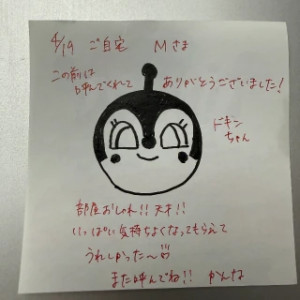 4/19 ご自宅 Mさま
この前は
呼んでくれて ありがとうございました!
ドキン
ちゃん
部屋おしゃれ!! 天才!!
いっぱい気持ちよくなってもらえて
うれしかった〜!!
また呼んでね!! かんな